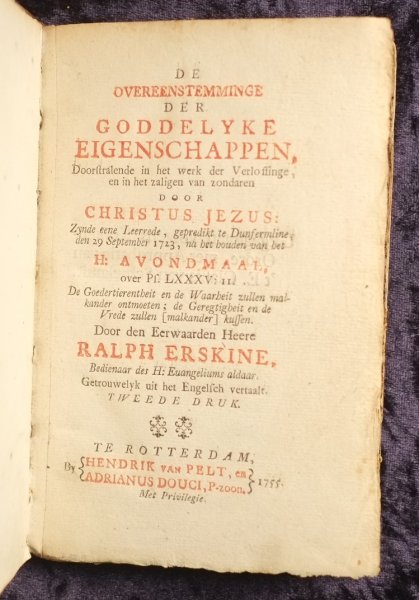 DE
OVEREENSTEMMINGE
DER
GODDELYKE
EIGENSCHAPPEN,
Doorstralende in het werk der Verlossinge,
en in het zaligen van zondaren
DOOR
CHRISTUS JEZUS:
Zynde eene Leerrede, gepredikt te Dunfermline,
den 29 September 1723, na het houden van het
H: AVONDMAAL,
over Ps. LXXXV: 11.
De Goedertierentheit en de Waarheit zullen mal-
kander ontmoeten; de Geregtigheit en de
Vrede zullen [malkander] kussen.
Door den Eerwaarden Heere
RALPH ERSKINE,
Bedienaar des H: Euangeliums aldaar.
Getrouwelyk uit het Engelsch vertaalt.
TWEEDE DRUK.
TE ROTTERDAM,
By HENDRIK VAN PELT, en
ADRIANUS DOUCI, P-zoon. 1755.
Met Privilegie.